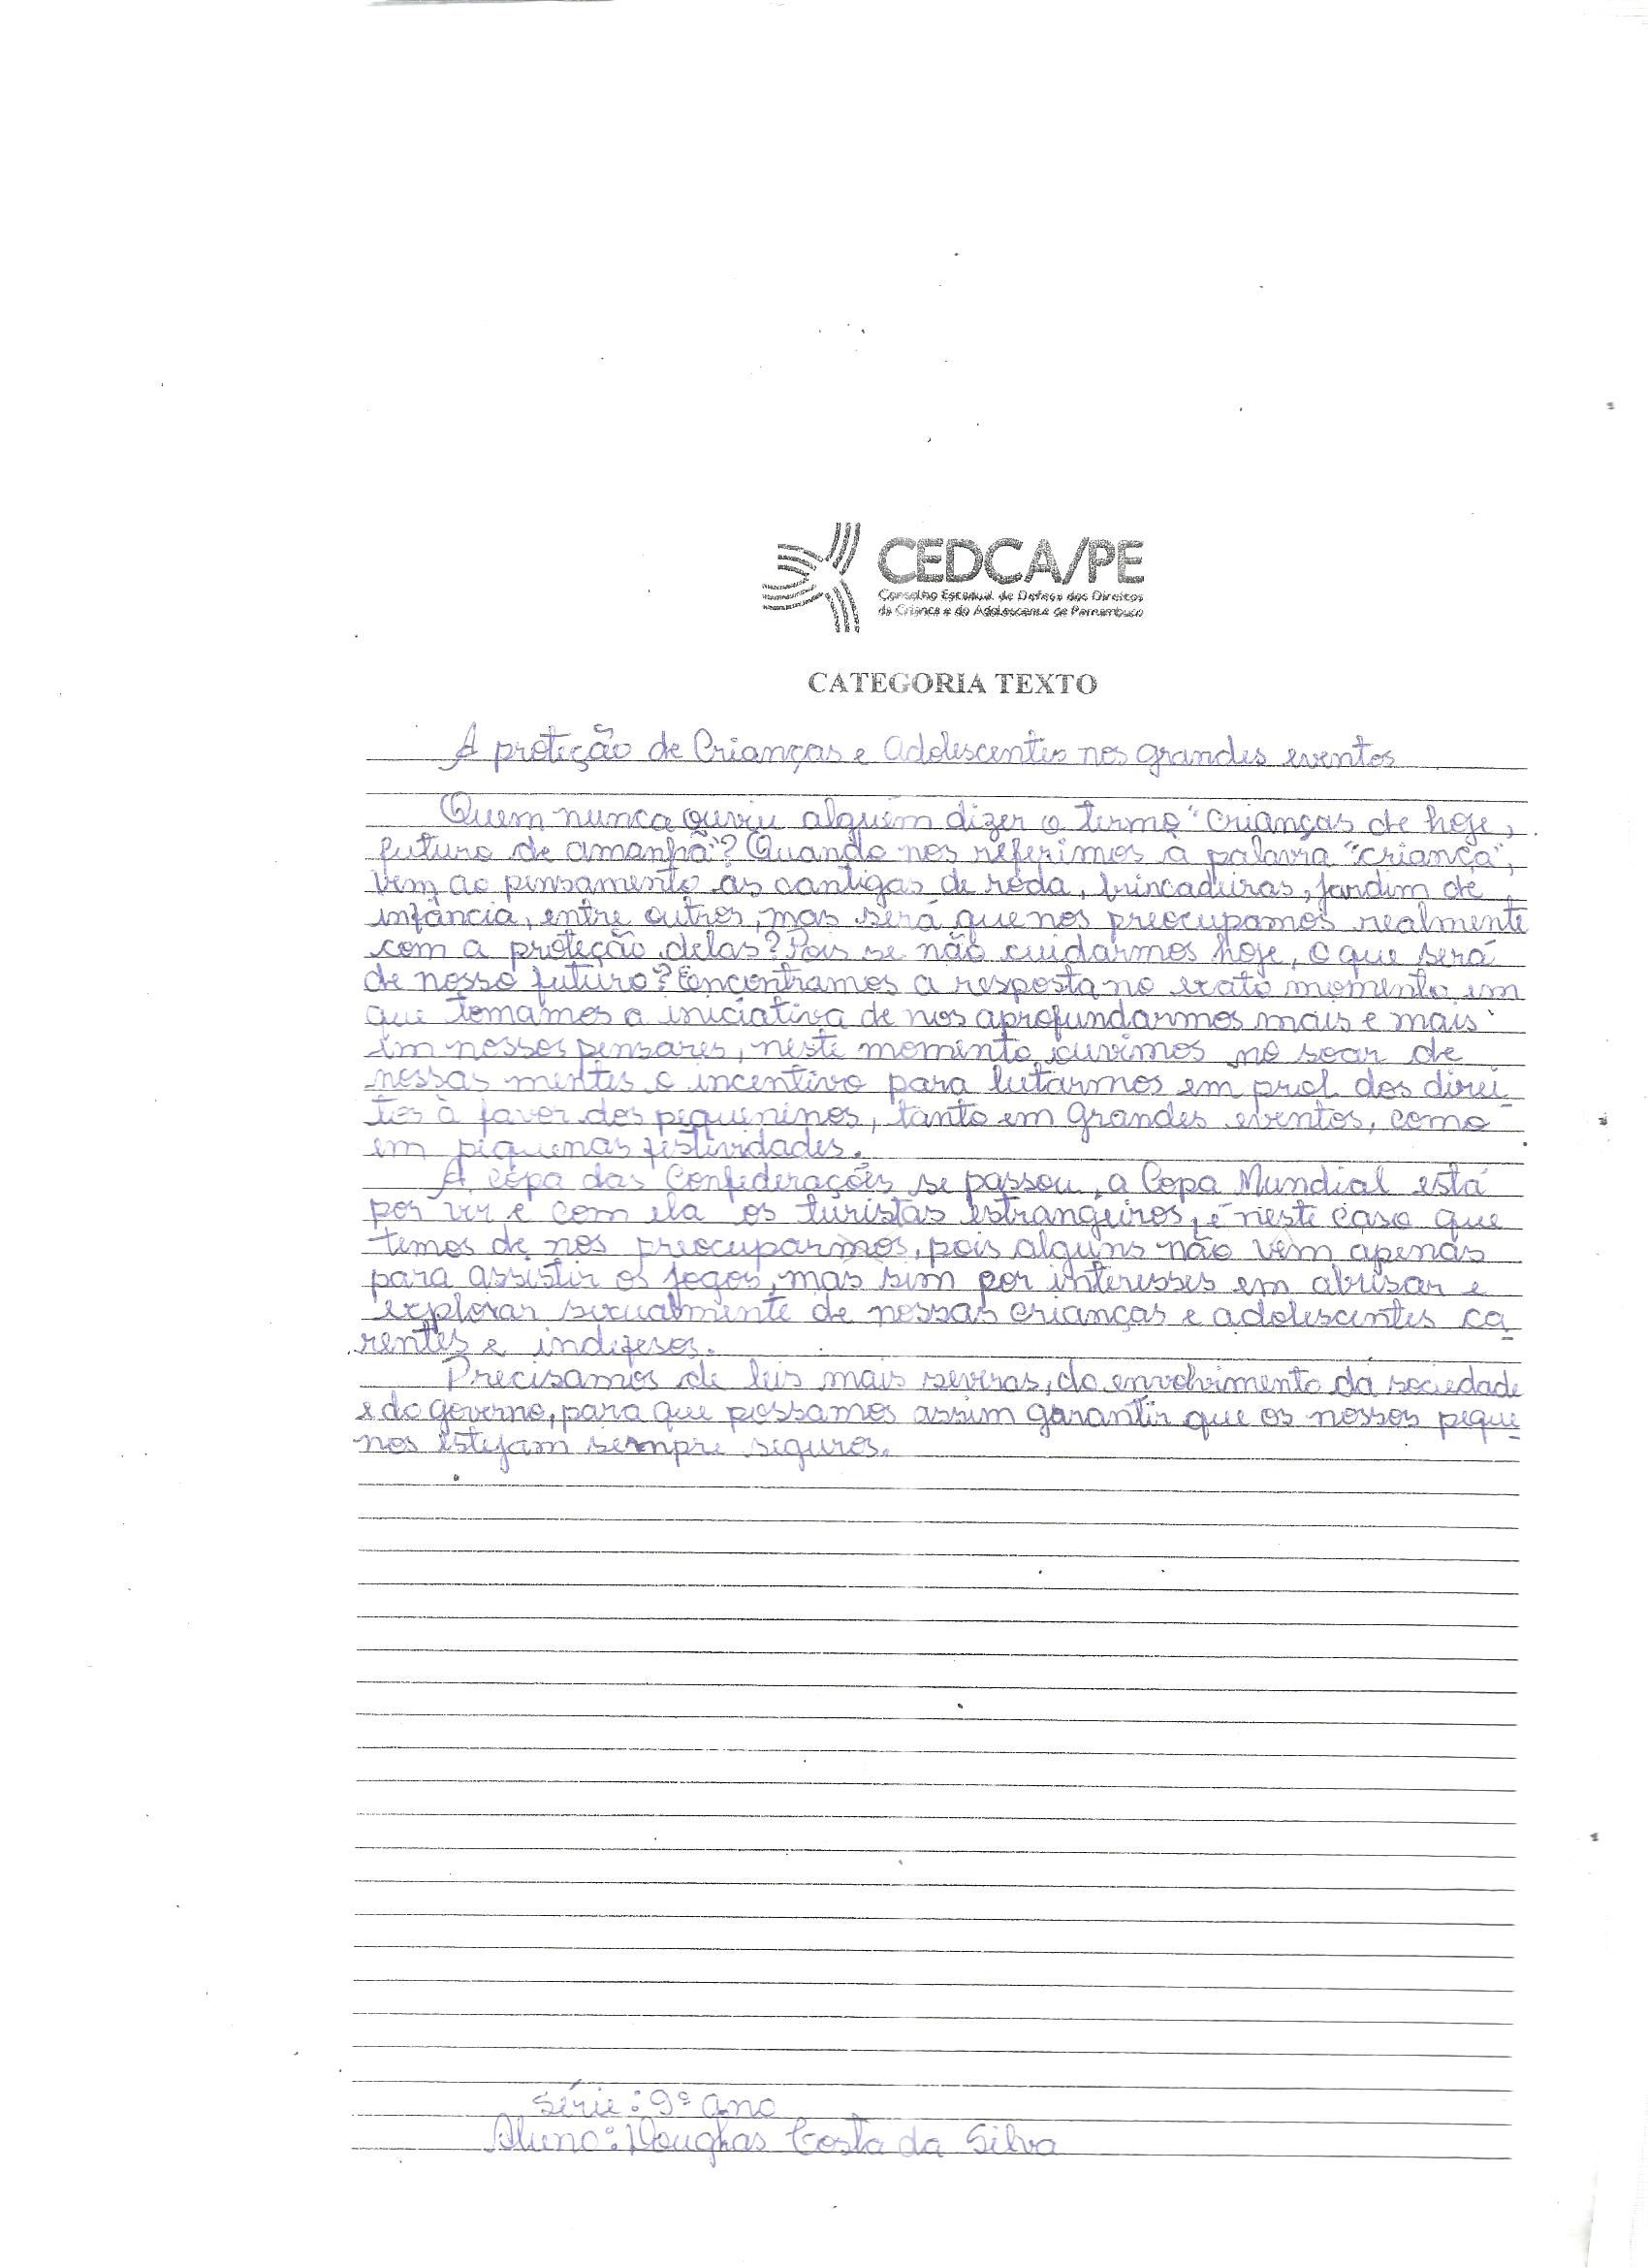 CEDCA/PE
Conselho Estadual de Defesa dos Direitos
da Criança e do Adolescente de Pernambuco
CATEGORIA TEXTO
A proteção de Crianças e Adolescentes nos grandes eventos
Quem nunca ouviu alguém dizer o termo "crianças de hoje,
futuro de amanhã"? Quando nos referimos a palavra "criança",
vem ao pensamento as cantigas de roda, brincadeiras, jardim de
infância, entre outros, mas será que nos preocupamos realmente
com a proteção delas? Pois se não cuidarmos hoje, o que será
de nosso futuro? Encontramos a resposta no exato momento em
que tomamos a iniciativa de nos aprofundarmos mais e mais
em nossos pensares, neste momento ouvimos no soar de
nossas mentes o incentivo para lutarmos em prol dos direi-
tos à favor dos pequeninos, tanto em grandes eventos, como
em pequenas festividades.
A copa das Confederações se passou, a Copa Mundial está
por vir e com ela os turistas estrangeiros, é neste caso que
temos de nos preocuparmos, pois alguns não vêm apenas
para assistir os jogos, mas sim por interesses em abusar e
explorar sexualmente de nossas crianças e adolescentes ca-
rentes e indefesos.
Precisamos de leis mais severas, do envolvimento da sociedade
e do governo, para que possamos assim garantir que os nossos peque-
nos estejam sempre seguros.
Série: 9º ano
Aluno: Douglas Costa da Silva